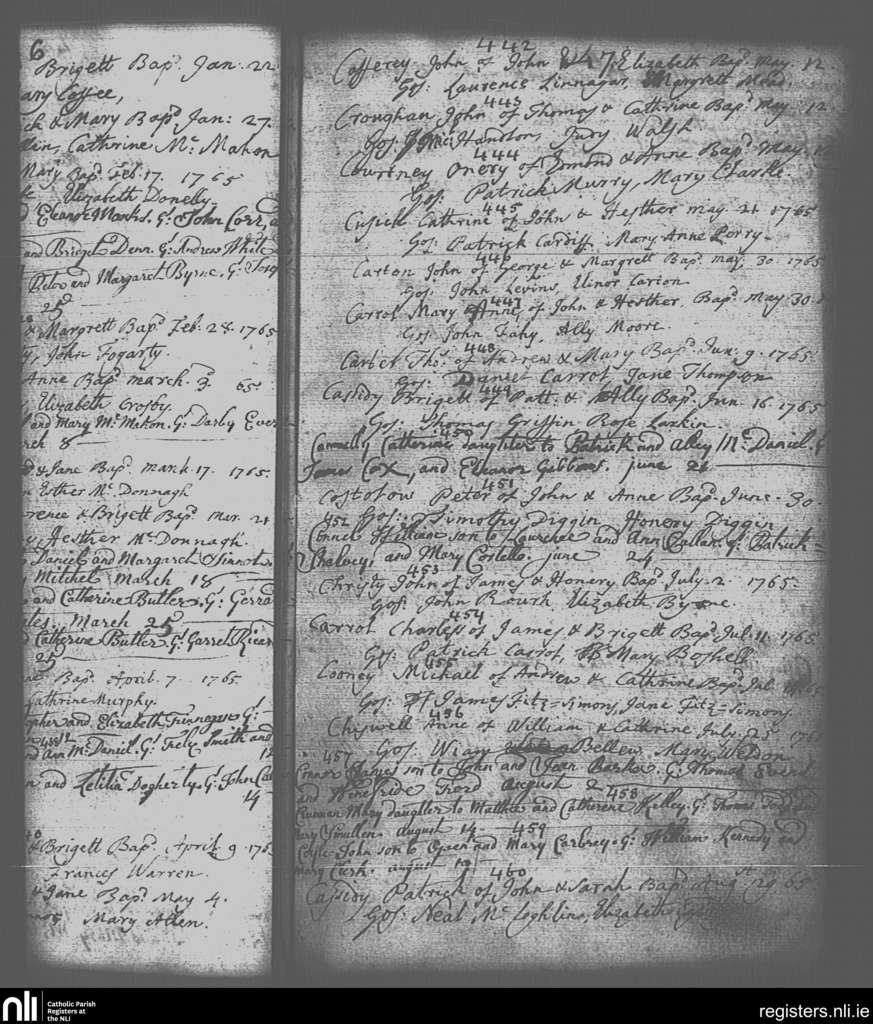 6
Brigett Bap.d Jan: 22
ary Coffee,
ck & Mary Bap.d Jan: 27.
lin, Catherine Mc Mahon
Mary Bap.d Feb. 17. 1765
Elizabeth Donelly
Eleanor Marks. G: John Corr,
and Briget Denn. G: Andrew White
Peter and Margaret Byrne. G: Jos
25
& Margrett Bap.d Feb. 28. 1765
y, John Fogarty.
Anne Bap.d march. 3. 65
Elizabeth Crosby.
and Mary Mc Mahon. G: Darby Ever
rch 8
& Jane Bap.d March. 17. 1765.
Esther Mc Donnagh
rence & Brigett Bap.d Mar. 21
y, Hesther Mc Donnagh.
Daniel and Margaret Sinnot
Mitchel March 18
and Catharine Butler. G: Gerra
ales. March 25
Catherine Butler G: Garret Kear
25
Bap.d April. 7 1765
Catharine Murphy.
topher and Elizabeth Finnagan G:
and Ann Mc Daniel. G: Smith and
12
and Letitia Dogherty. G: John
14
& Brigett Bap.d April. 9 176
Frances Warren.
& Jane Bap.d May 4.
Mary Allen.
442
Cofferey John of John & Elizabeth Bap.d May. 12
Gos: Laurence Linnagar, Margrett Mead.
443
Croughan John of Thomas & Cathrine Bap.d may. 12.
Gos: Hanolon, Judy Walsh
444
Courtney Onery of Ermond & Anne Bap.d May.
Gos: Patrick Murry, Mary Clarke.
445
Cusick Cathrine of John & Hesther may. 21 1765
Gos: Patrick Cardiff Mary Anne Perry
446
Carton John of George & Margrett Bap.d may. 30. 1765
Gos: John Levins, Elinor Carton
447
Carrol Mary Anne of John & Hesther, Bap.d May 30.
Gos: John Fahy, Ally Moore.
448
Carbet Tho.s of Andrew & Mary Bap.d Jun. 9. 1765.
Gos: Daniel Carrot Jane Thompson
449
Cassidy Brigett of Patt. & Ally Bap.d Jun. 16 1765
Gos: Thomas Griffin Rose Larkin.
450
Connelly Catherine daughter to Patrick and Alley Mc Daniel. G
James Cox, and Eleanor Gibbons. june 21
451
Costolow Peter of John & Anne Bap.d June. 30.
452 Gos: Timothy Diggin Honery Diggin
Connel William son to Laurence and Ann Callan. G: Patrick
Shalvey, and Mary Costello. june 24
453
Christy John of James & Honery Bap.d July. 2. 1765.
Gos: John Rourk Elizabeth Byrne.
454
Carrol Charless of James & Brigett Bap.d Jul. 11. 1765
Gos: Patrick Carrot, Mary Boshell
455
Cooney Michael of Andrew & Cathrine Bap.d Jul.
Gos: James Fitz=simons, Jane Fitz=simons.
456
Chiswell Anne of William & Cathrine July. 25 1765
457 Gos: Bellew, Mary Weldon
Connor James son to John and Joan Barker. G: Thomas
and Winefride Ford August 2
458
Mary daughter to Matthew and Catherine Kelley. G: Thomas
Mary Smullen. august 14
459
Coyle John son to Owen and Mary Carbrey. G: William Kennedy and
Mary Clerk. august
460
Cassidy Patrick of John & Sarah Bap.d Aug.st 29 65
Gos: Neal Mc Loghlin, Elizabeth
nli
Catholic Parish
Registers at
the NLI
registers.nli.ie